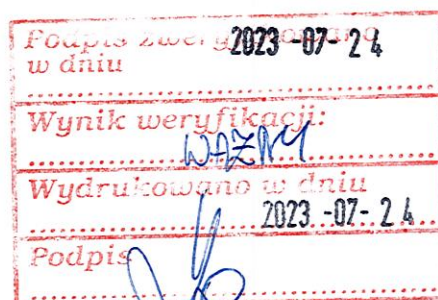 Podpis zweryfikowano 2023 -07- 24
w dniu
Wynik weryfikacji:
WAŻNY
Wydrukowano w dniu
2023 -07- 24
Podpis